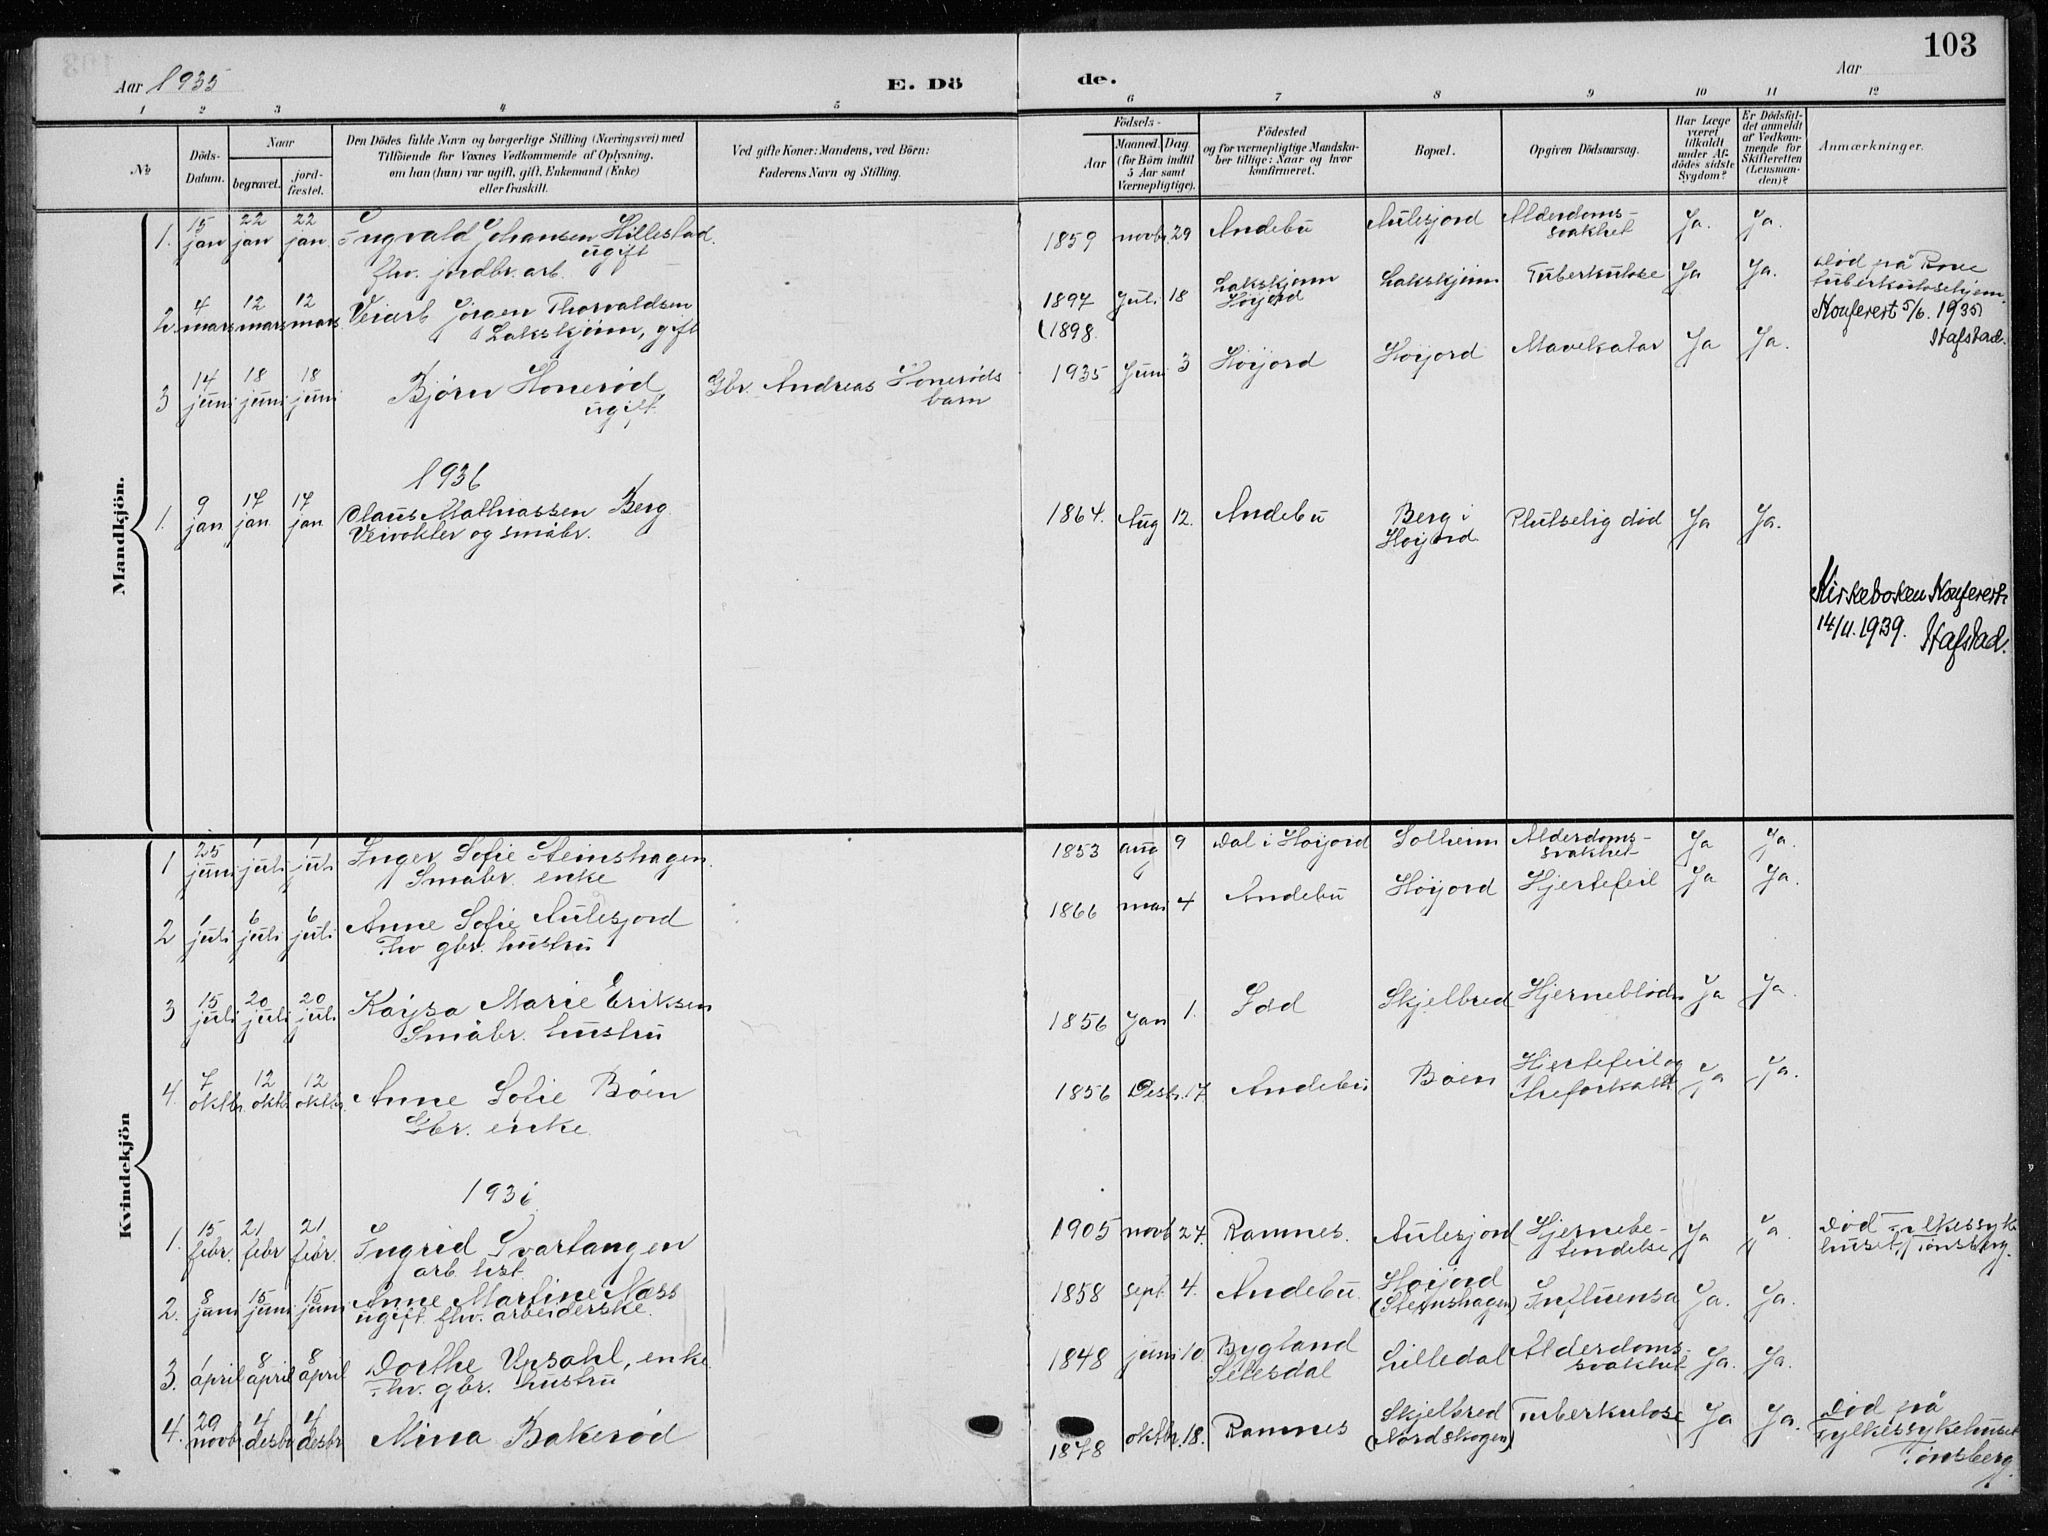 103
Aar 1935
E. Dö
de.
Aar
1 2 3 4 5 6 7 8 9 10 11 12
No
Döds-Datum.
Naar
begravet.
jord-fæstet.
Den Dödes fulde Navn og borgerlige Stilling (Næringsvei) med
Tilföiende for Voxnes Vedkommende af Oplysning,
om han (hun) var ugift, gift, Enkemand (Enke)
eller fraskilt.
Ved gifte Koner: Mandens, ved Börn:
Faderens Navn og Stilling.
Födsels-
Aar
Maaned. (for Börn indtil 5 Aar samt Værnepligtige).
Dag
Födested
og for værnepligtige Mandska-
ber tillige: Naar og hvor
konfirmeret.
Bopæl.
Opgiven Dödsaarsag.
Har Læge været tilkaldt under Af-dödes sidste Sygdom?
Er Dödsfal-det anmeldt af Vedkom-mende for Skifteretten (Lensman-den)?
Anmærkninger.
Mandkjön.
1. 15 jan 22 jan 22 jan Ingvald Johansen Hillestad. ugift fhv. jordbr. arb. 1859 novbr 29 Andebu Aulesjord Alderdoms-svakhet Ja. Ja.
2 4 mars 12 mars 12 mars Veiarb Jörgen Thorvaldsen Lakskjönn, gift 1897 (1898. Juli 18 Lakskjönn Höijord Lakskjönn Tuberkulose Ja Ja. Död på tuberkulosehjem.
Konferert 5/6. 1935
Hafstad.
3 14 juni 18 juni 18 juni Bjørn Honerød ugift. Gbr. Andreas Honerøds barn 1935 Juni 3 Höijord Höijord Mavekatar Ja Ja.
1936
1. 9 jan 17 jan 17 jan Claus Mathiassen Berg Veivokter og småbr. 1864. Aug 12. Andebu Berg i Höijord. Plutselig död Ja Ja.
Kirkeboken Konferert
14/11.1939. Hafstad.
Kvindekjön
1 25 juni 1 juli 1 juli Inger Sofie Steinshagen. Småbr. enke 1853 aug 9 Dal i Höijord Solheim Alderdoms-svakhet Ja Ja.
2 1 juli 6 juli 6 juli Anne Sofie Aulesjord Fhv gbr. hustru 1866 mai 4 Andebu Höijord Hjertefeil Ja Ja.
3 15 juli 20 juli 20 juli Kajsa Marie Eriksen Småbr. hustru 1856 Jan 1. Skjelbred Hjerneblödn Ja Ja.
4. 7 oktbr. 12 oktb. 12 oktbr. Anne Sofie Böen Gbr. enke. 1856 Desbr. 17 Andebu Böen Hjertefeil og Åreforkalk Ja Ja.
1936
1. 15 febr. 21 febr 21 febr. Ingrid Svartangen arb. hst. 1905 novb 27. Ramnes. Aulesjord Hjernebe-tendelse Ja Ja. Död Fylkessyk-huset, Tönsberg.
2. 8 juni 15 juni 15 juni Anne Martine Næss ugift. fhv. arbeiderske. 1858 sept 4. Andebu. Höijord (Steinshagen) Influensa Ja. Ja.
3. 1 april 8 april 8 april Dorthe Upsahl, enke Fhv. gbr. hustru 1848 juni 10 Bygland Setesdal Lilledal Alderdoms-svakhet Ja. Ja.
4. 29 novbr 4 desbr 4 desbr Mina Bakerød 1878 oktbr. 18. Ramnes Skjelbred (Nordskogen) Tuberkulose Ja Ja. Död på Fylkessykehuset Tönsberg.